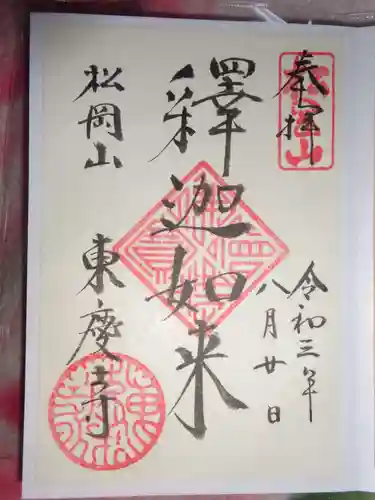 奉拝
松岡山
令和三年
八月廿日
釋迦如来
松岡山
東慶寺